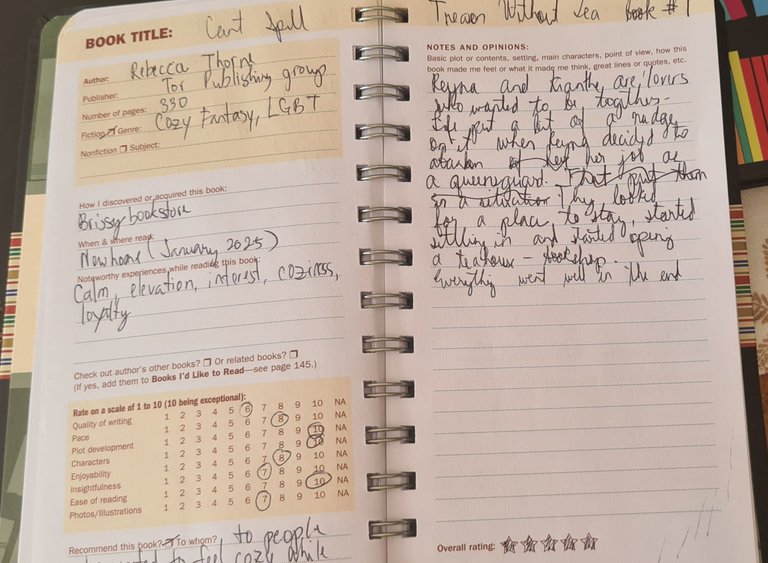 BOOK TITLE: Cant Spell
Author: Rebecca Thorne
Publisher: Tor Publishing group
Number of pages: 330
Fiction Genre: Cozy Fantasy, LGBT
Nonfiction Subject:
How I discovered or acquired this book:
Brissy bookstore
When & where read:
New home (January 2025)
Noteworthy experiences while reading this book:
Calm, elevation, interest, coziness,
loyalty
Check out author's other books? Or related books?
(If yes, add them to Books I'd Like to Read—see page 145.)
Rate on a scale of 1 to 10 (10 being exceptional):
Quality of writing 1 2 3 4 5 6 7 8 9 10 NA
Pace 1 2 3 4 5 6 7 8 9 10 NA
Plot development 1 2 3 4 5 6 7 8 9 10 NA
Characters 1 2 3 4 5 6 7 8 9 10 NA
Enjoyability 1 2 3 4 5 6 7 8 9 10 NA
Insightfulness 1 2 3 4 5 6 7 8 9 10 NA
Ease of reading 1 2 3 4 5 6 7 8 9 10 NA
Photos/Illustrations 1 2 3 4 5 6 7 8 9 10 NA
Recommend this book? To whom? , to people
to feel cozy while
Without Sea book #1
NOTES AND OPINIONS:
Basic plot or contents, setting, main characters, point of view, how this
book made me feel or what it made me think, great lines or quotes, etc.
Reyna and Kianthe are lovers
who wanted to be together.
Life put a bit of a
on it when Reyna decided to
her job as
a queensguard. That put them
in a situation They looked
for a place to stay, started
settling in and started opening
a teahouse - bookshop.
Everything went well in the end
Overall rating: